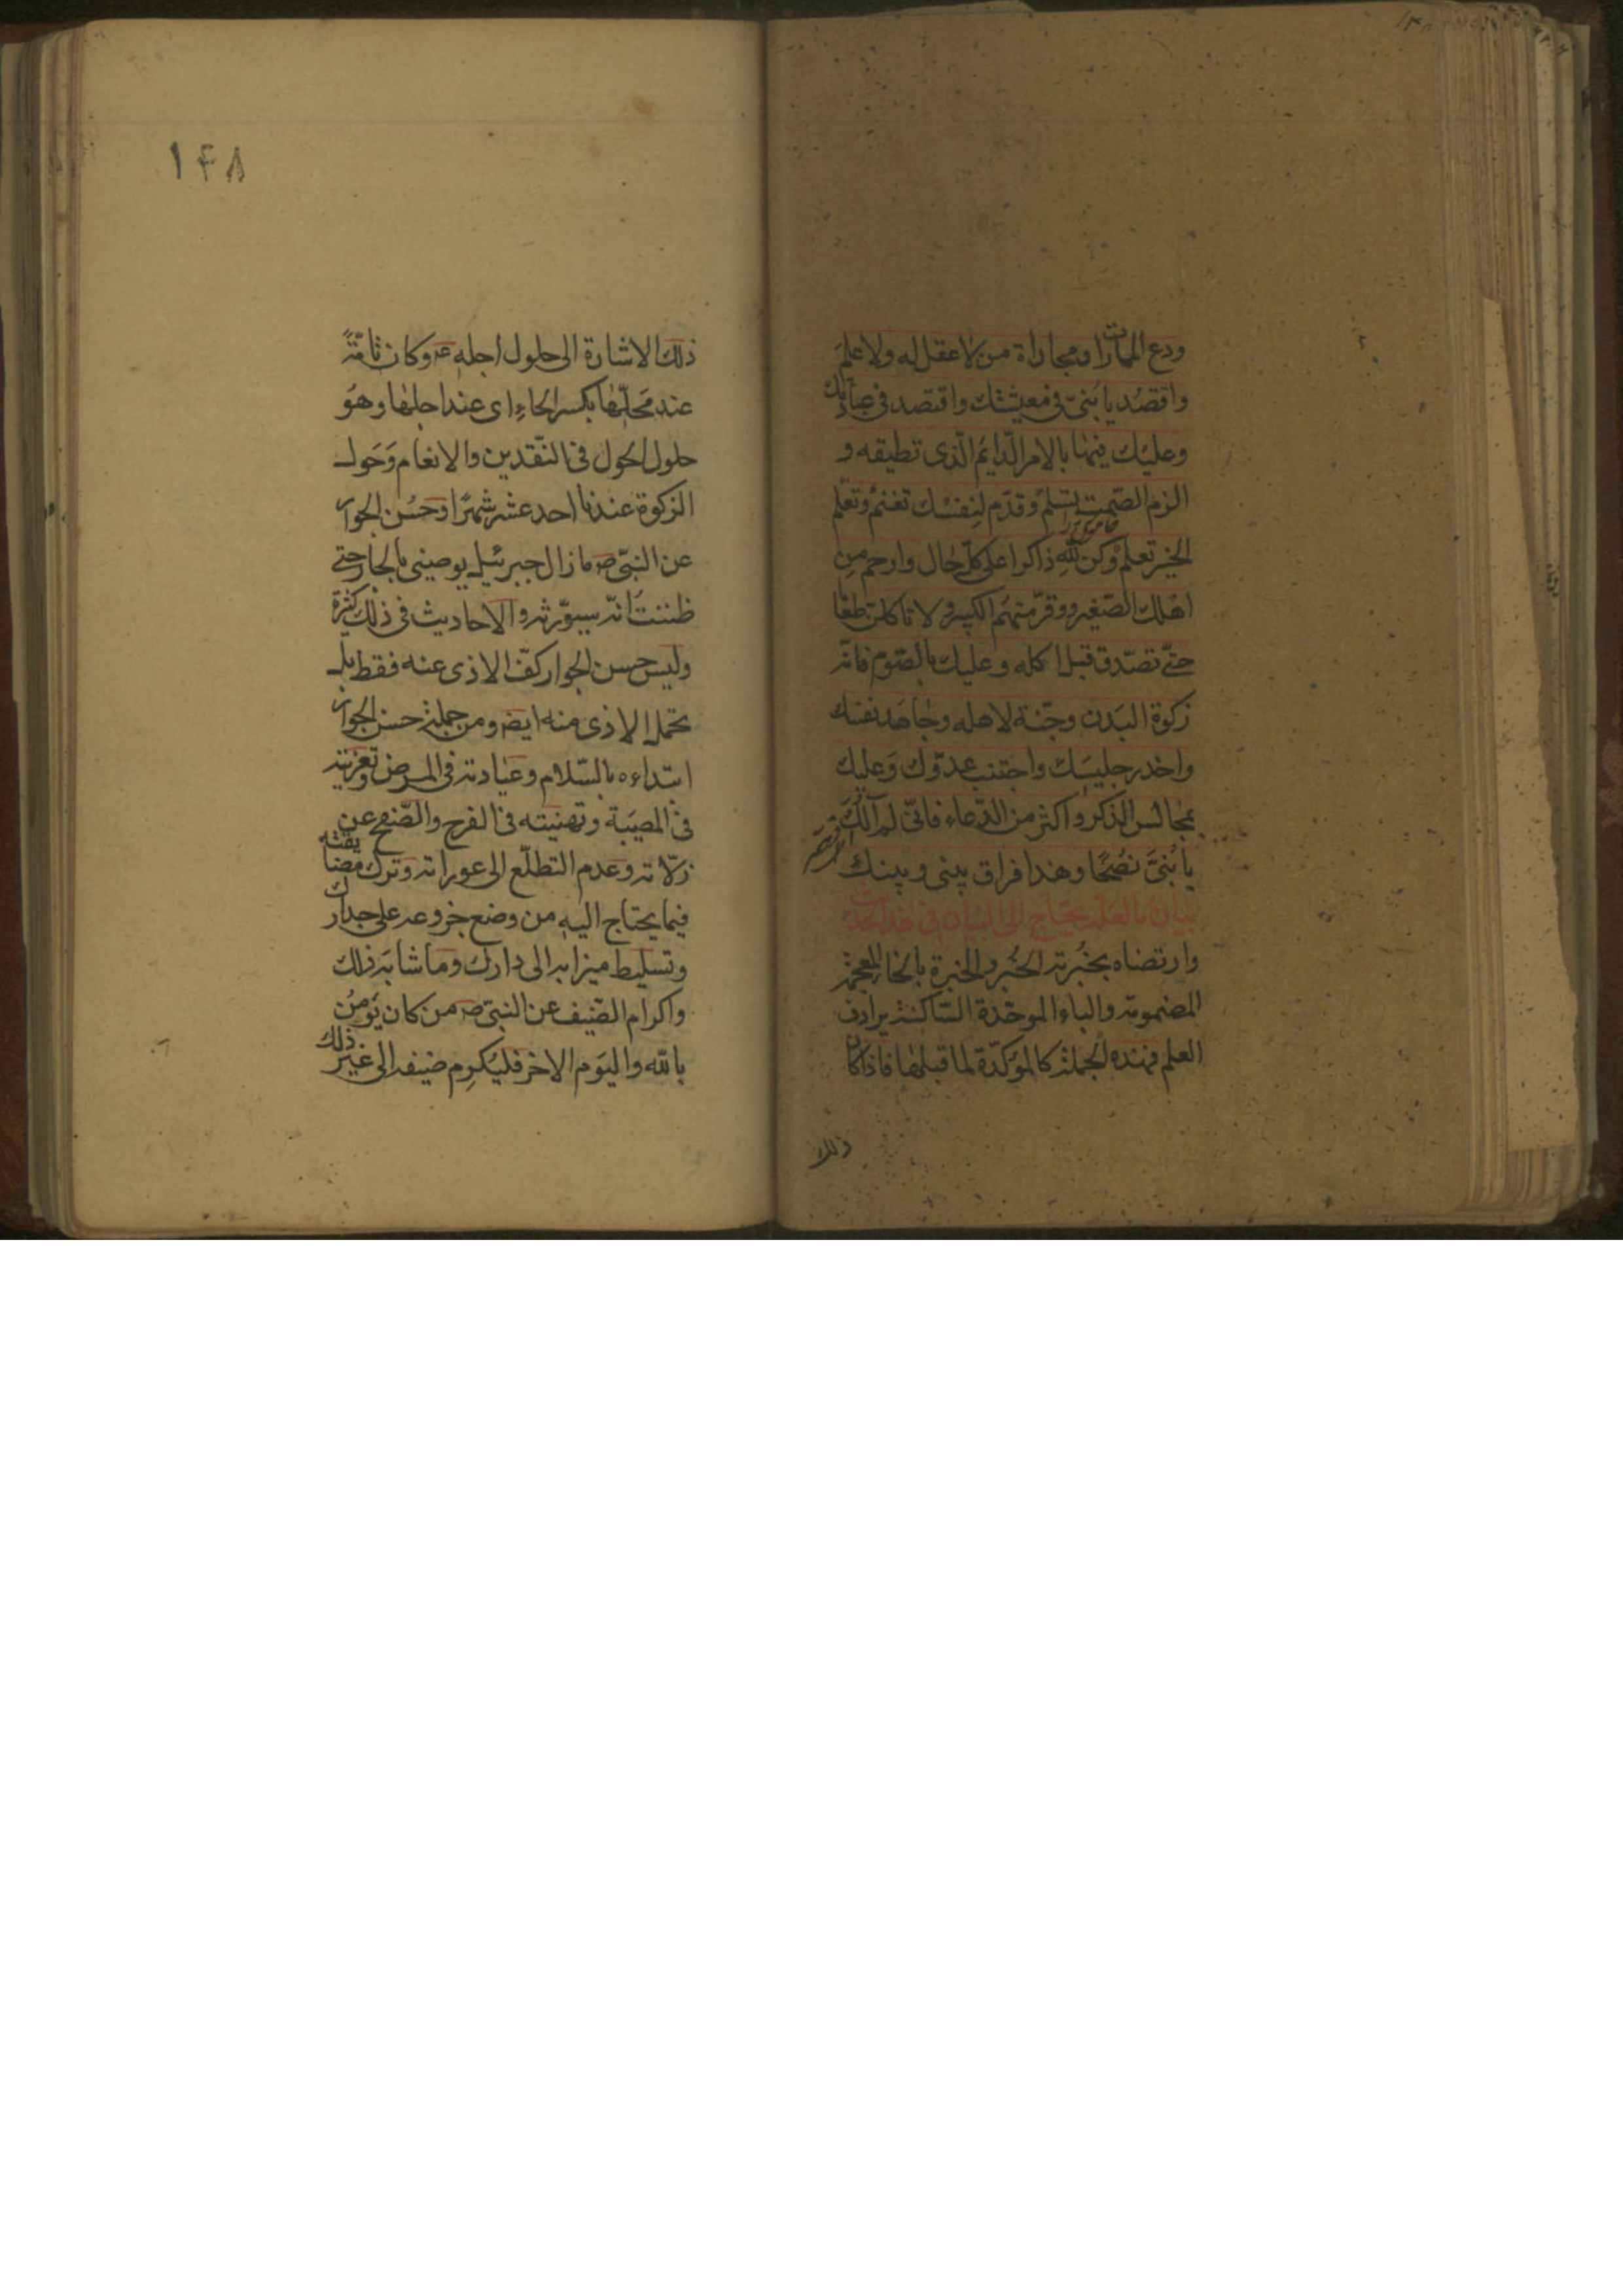 ودع الممارات ومجاراة من لا عقل له ولا علم
واقصد يا بنىّ فى معيشتك واقتصد فى عبادتك
وعليك فيها بالامر الدّايم الّذى تطيقه و
الزم الصّمت تسلم وقدّم لنفسك تغنم وتعلّم
الخير تعلم وكن للّه ذاكرا على كلّ حال وارحم من
اهلك الصّغير ووقّر منهم الكبير ولا تاكلن طعاما
حتّى تصدّق قبل اكله وعليك بالصّوم فانّه
زكوة البدن وجنّة لاهله وجاهد نفسك
واحذر جليسك واجتنب عدوّك وعليك
بمجالس الذكر واكثر من الدّعاء فانّى لم آلك
يا بُنىَّ نصُحًا وهذا فراق بينى وبينك
بيان ما لعلّه يحتاج الى البيان فى هذا الحديث
وارتضاه بخُبرته الخُبر والخبرة بالخاء المعجمة
المضمومة والباء الموحّدة السّاكنة يرادف
العلم فهذه الجملة كالمؤكّدة لما قبلها فاذا كان
ذلك
١۴٨
ذلك الاشارة الى حلول اجله ع وكان ثامّةً
عند مَحِلّها بكسر الحاء اى عند اجلها وهو
حلول الحول فى النّقدين والانعام وَحَول
الزكوة عندنا احد عشر شهرًا وَحُسْن الجوار
عن النبىّ ص ما زال جبرئيل يوصينى بالجار حتى
ظننت انّه سيورّثه والاحاديث فى ذلك كثيرة
وليس حسن الجوار كفّ الاذى عنه فقط بل
تحمل الاذى منه ايض ومن جملة حسن الجوار
ابتداءه بالسّلام وعيادته فى المرض وتعزيته
فى المصيبة وتهنيته فى الفرح والصّفح عن
زلّاته وعدم التطلّع الى عوراته وترك مضايقته
فيما يحتاج اليه من وضع جزوعه على جدارك
وتسليط ميزابه الى دارك وما شابه ذلك
واكرام الضّيف عن النبىّ ص من كان يؤمن
باللّه واليوم الاخر فليكرم ضيفه الى غير ذلك